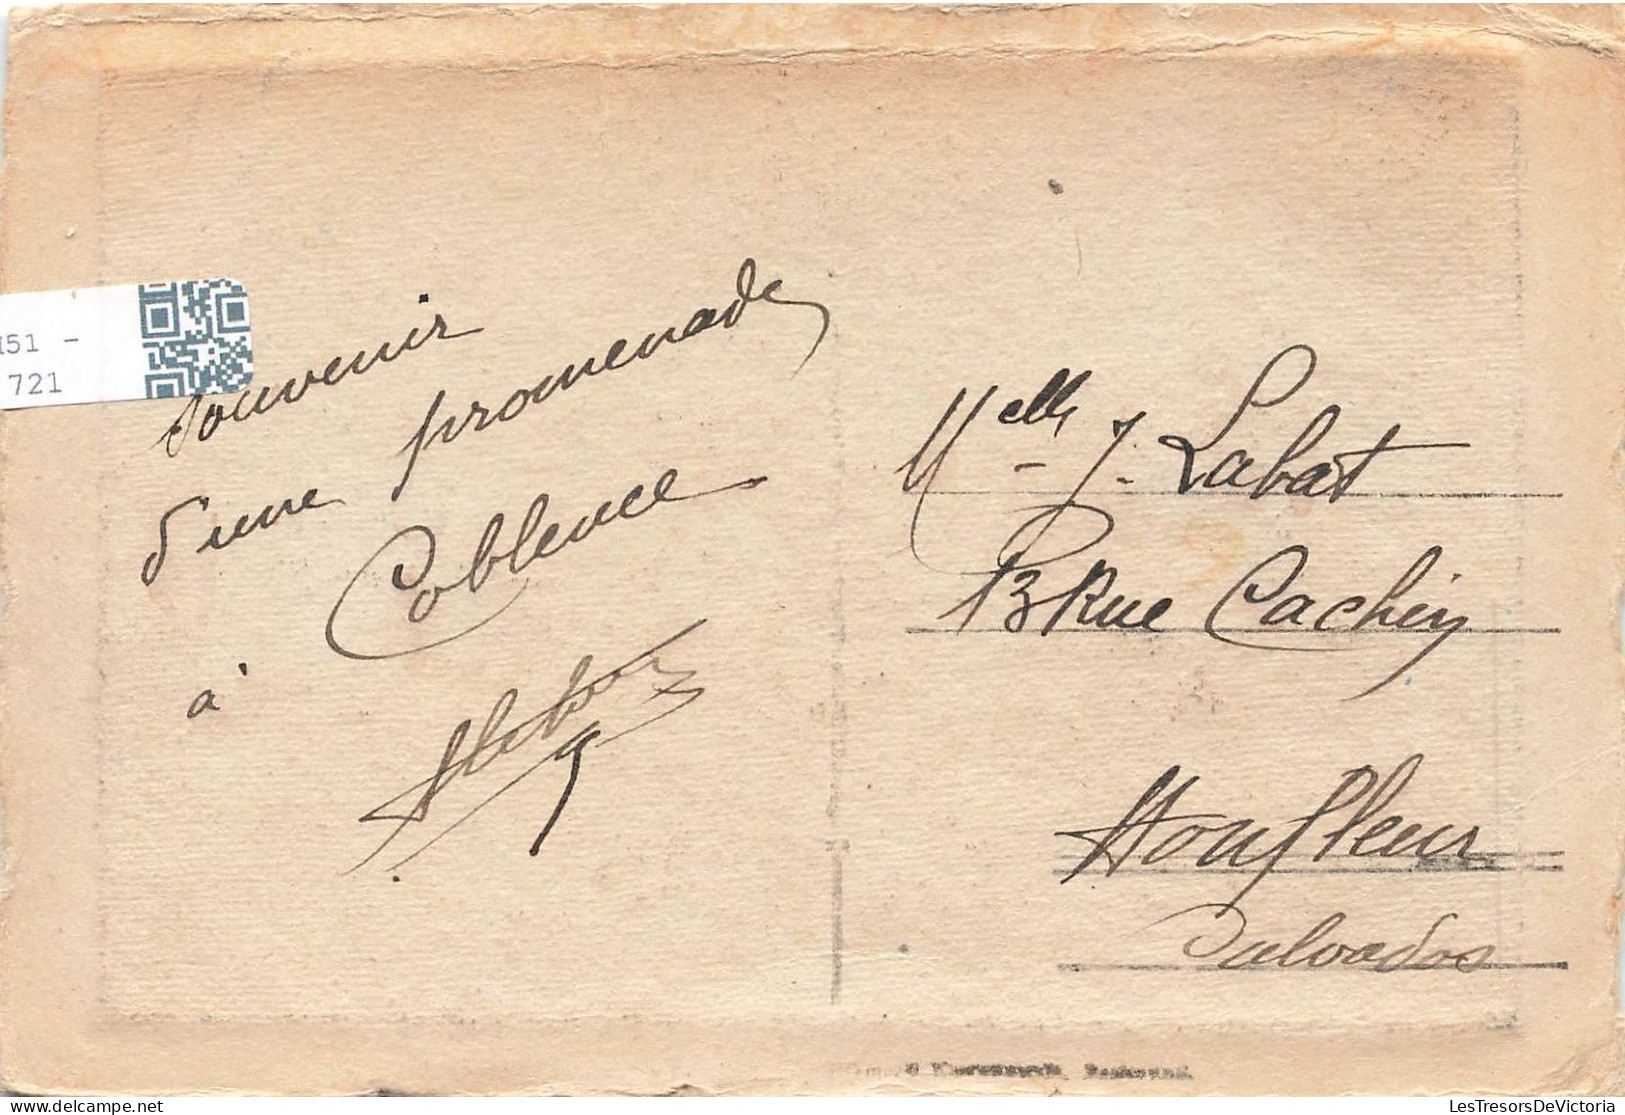 51 -
721
souvenir
d'une promenade
à Coblence
Melle J. Labat
13 Rue Cachin
Honfleur
Calvados
LesTresorsDeVictoria
www.delcampe.net